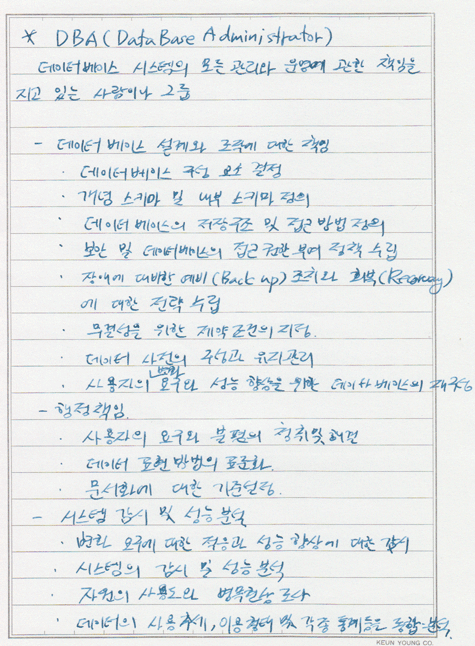 * DBA(DataBase Administrator)
데이터베이스 시스템의 모든 관리와 운영에 관한 책임을
지고 있는 사람이나 그룹
- 데이터베이스 설계와 조작에 대한 책임
· 데이터베이스 구성 요소 결정
· 개념 스키마 및 내부 스키마 정의
· 데이터베이스의 저장구조 및 접근방법 정의
· 보안 및 데이터베이스의 접근 권한 부여 정책 수립
· 장애에 대비한 예비(Back up) 조치와 회복(Recovery)
에 대한 전략 수립
· 무결성을 위한 제약조건의 지정.
· 데이터 사전의 구성과 유지관리
· 사용자의 변화 요구와 성능 향상을 위한 데이터베이스의 재구성
- 행정책임.
· 사용자의 요구와 불편의 청취 및 해결
· 데이터 표현 방법의 표준화.
· 문서화에 대한 기준설정.
- 시스템 감시 및 성능 분석
· 변화 요구에 대한 적응과 성능 향상에 대한 감시
· 시스템의 감시 및 성능 분석
· 자원의 사용도와 병목현상 조사
· 데이터의 사용추세, 이용형태 및 각종 통계들을 종합·분석.
KEUN YOUNG CO.